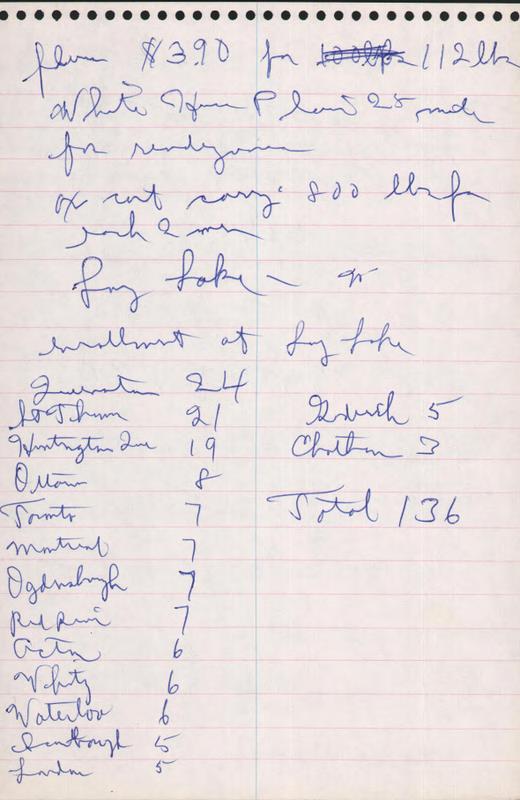 flour $3.90 for 100 lbs 112 lbs
White Horse Plain 25 mile
for rendezvous
ox cart carry 800 lbs for
each 2 men
Long Lake - or
enrollment at Long Lake
Queenston 24
St Thomas 21
Huntingdon Que 19
Ottawa 8
Toronto 7
Montreal 7
Ogdensburgh 7
Red River 7
Acton 6
Whitby 6
Waterloo 6
Scarborough 5
London 5
Goderich 5
Chatham 3
Total 136